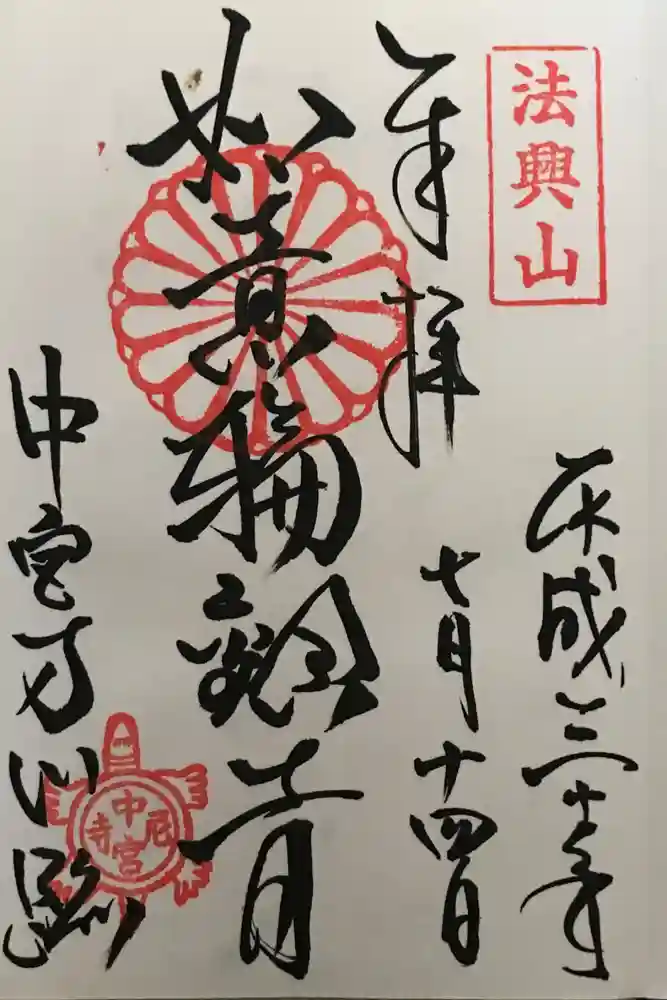 法興山
平成三十年
七月十四日
奉拝
如意輪観音
中宮寺門跡
中宮尼寺